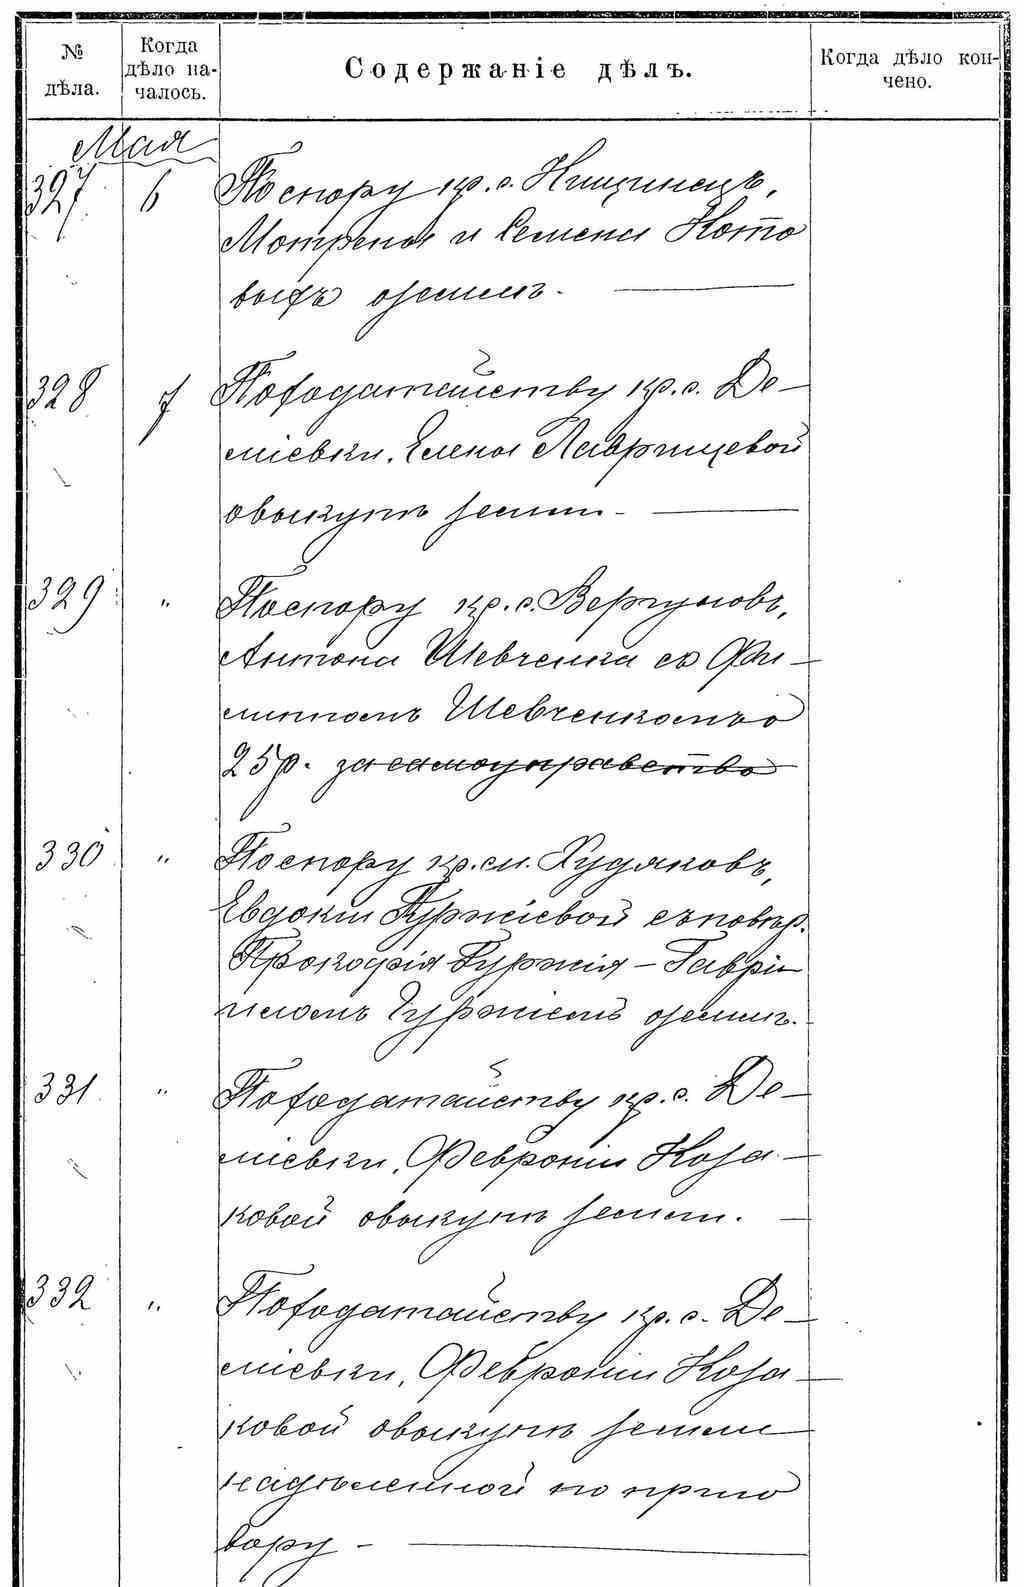 № дѣла.
Когда дѣло началось.
Содержаніе дѣлъ.
Когда дѣло кончено.
Мая
327 6 По спору кр. с. Нищинецъ,
Мотрены и Семена Кото
выхъ о земли. —
328 7 По ходатайству кр. с. Де-
міевки, Елены Лаврищевой
о выкупѣ земли. —
329 " По спору кр. с. Вергуновъ,
Антона Шевченка съ Фи-
липпомъ Шевченкомъ о
25 р. за самоуправство
330 " По спору кр. м. Худяковъ,
Евдокіи Гуржіевой съ повѣр.
Прокофія Гуржія - Гаврі-
иломъ Гуржіемъ о земли.
331 " По ходатайству кр. с. Де-
міевки, Февроніи Коза-
ковой о выкупѣ земли. —
332 " По ходатайству кр. с. Де-
міевки, Февроніи Коза-
ковой о выкупѣ земли
надѣленной по приго
вору —